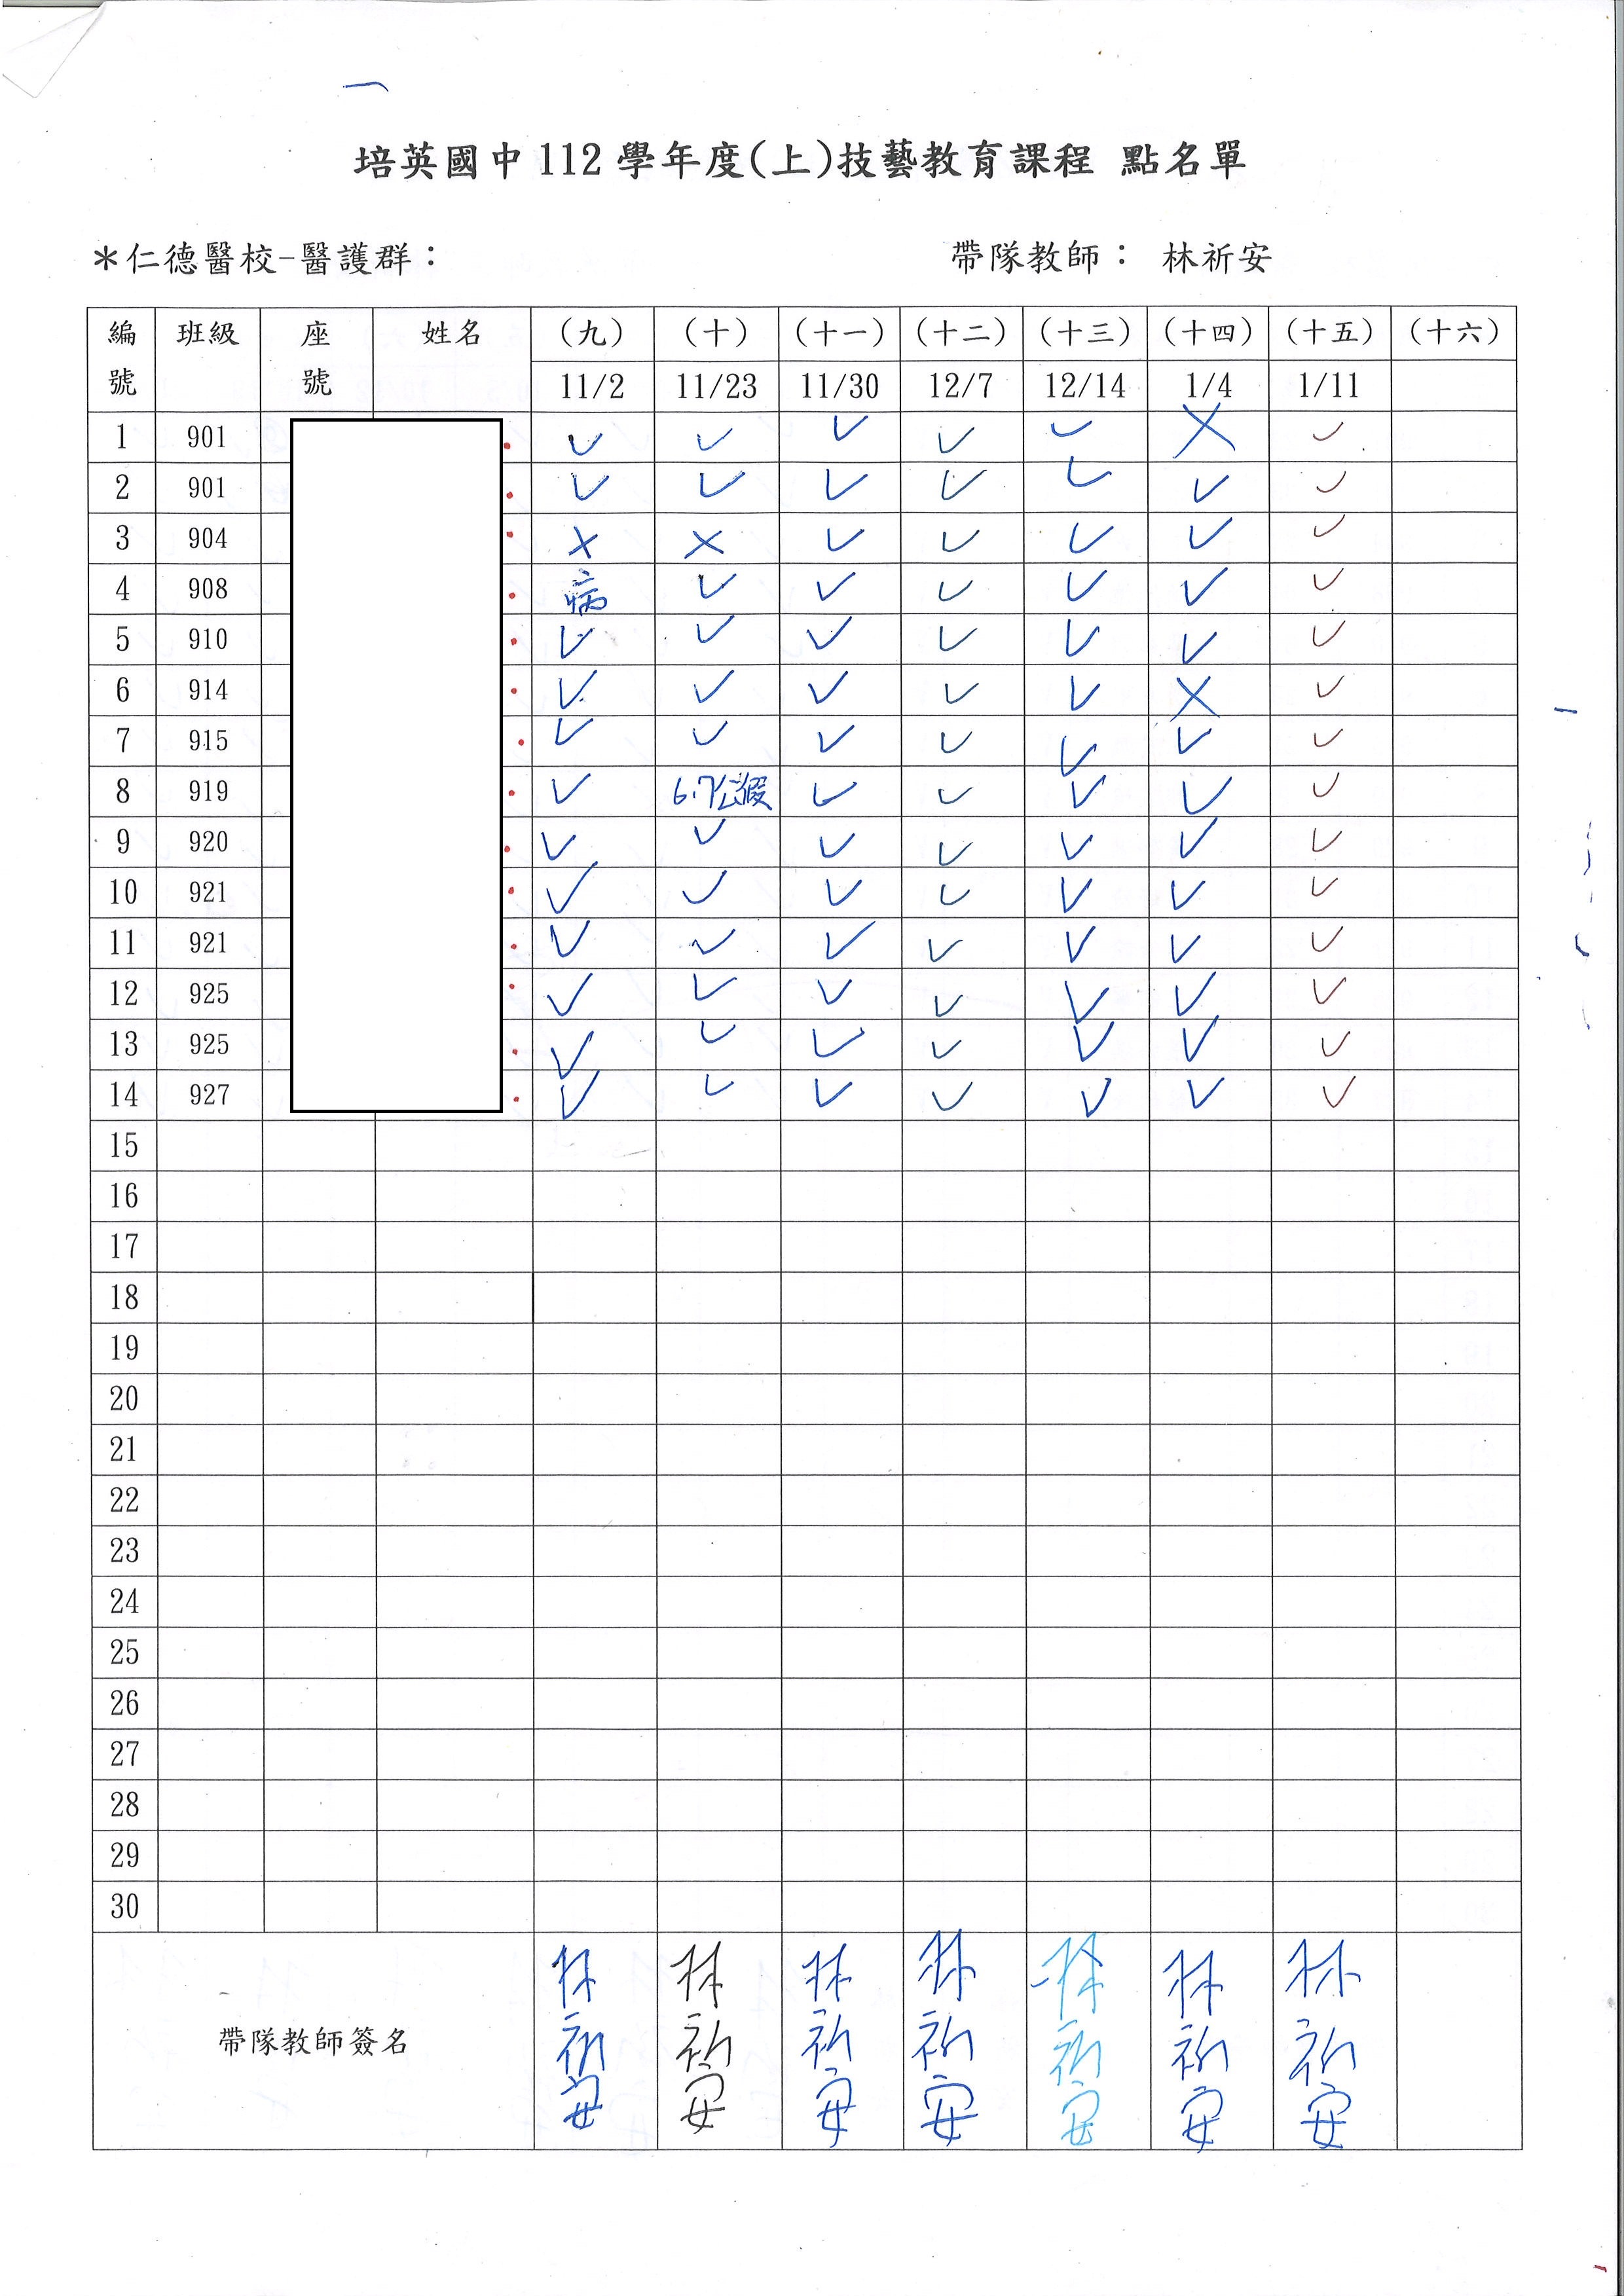 培英國中 112 學年度(上)技藝教育課程 點名單
＊仁德醫校-醫護群： 帶隊教師： 林祈安
編號 班級 座號 姓名 (九) (十) (十一) (十二) (十三) (十四) (十五) (十六)
11/2 11/23 11/30 12/7 12/14 1/4 1/11
1 901 ✓ ✓ ✓ ✓ ✓ ✗ ✓
2 901 ✓ ✓ ✓ ✓ ✓ ✓ ✓
3 904 ✗ ✗ ✓ ✓ ✓ ✓ ✓
4 908 病 ✓ ✓ ✓ ✓ ✓ ✓
5 910 ✓ ✓ ✓ ✓ ✓ ✓ ✓
6 914 ✓ ✓ ✓ ✓ ✓ ✗ ✓
7 915 ✓ ✓ ✓ ✓ ✓ ✓ ✓
8 919 ✓ 6.7公假 ✓ ✓ ✓ ✓ ✓
9 920 ✓ ✓ ✓ ✓ ✓ ✓ ✓
10 921 ✓ ✓ ✓ ✓ ✓ ✓ ✓
11 921 ✓ ✓ ✓ ✓ ✓ ✓ ✓
12 925 ✓ ✓ ✓ ✓ ✓ ✓ ✓
13 925 ✓ ✓ ✓ ✓ ✓ ✓ ✓
14 927 ✓ ✓ ✓ ✓ ✓ ✓ ✓
15
16
17
18
19
20
21
22
23
24
25
26
27
28
29
30
帶隊教師簽名 林祈安 林祈安 林祈安 林祈安 林祈安 林祈安 林祈安